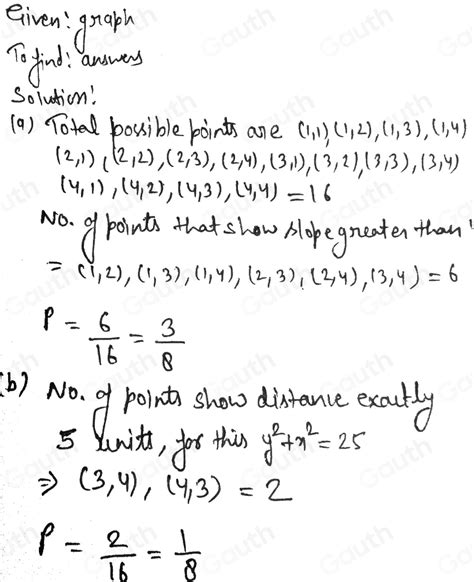 Given: graph
To find: answers
Solution:
(a) Total possible points are (1,1), (1,2), (1,3), (1,4)
(2,1), (2,2), (2,3), (2,4), (3,1), (3,2), (3,3), (3,4)
(4,1), (4,2), (4,3), (4,4) = 16
No. of points that show slope greater than
= (1,2), (1,3), (1,4), (2,3), (2,4), (3,4) = 6
P = 6/16 = 3/8
(b) No. of points show distance exactly
5 units, for this y²+x² = 25
⇒ (3,4), (4,3) = 2
P = 2/16 = 1/8